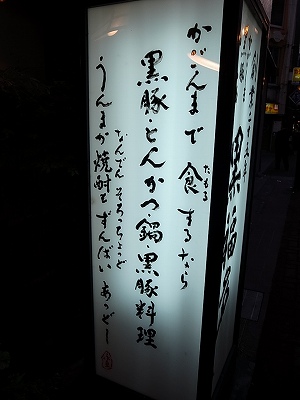 かごんまで 食するなら
たもる
黒豚・とんかつ・鍋・黒豚料理
なんでん そろっちょっど
うんまか焼酎も ずんばい あっどー
黒福多